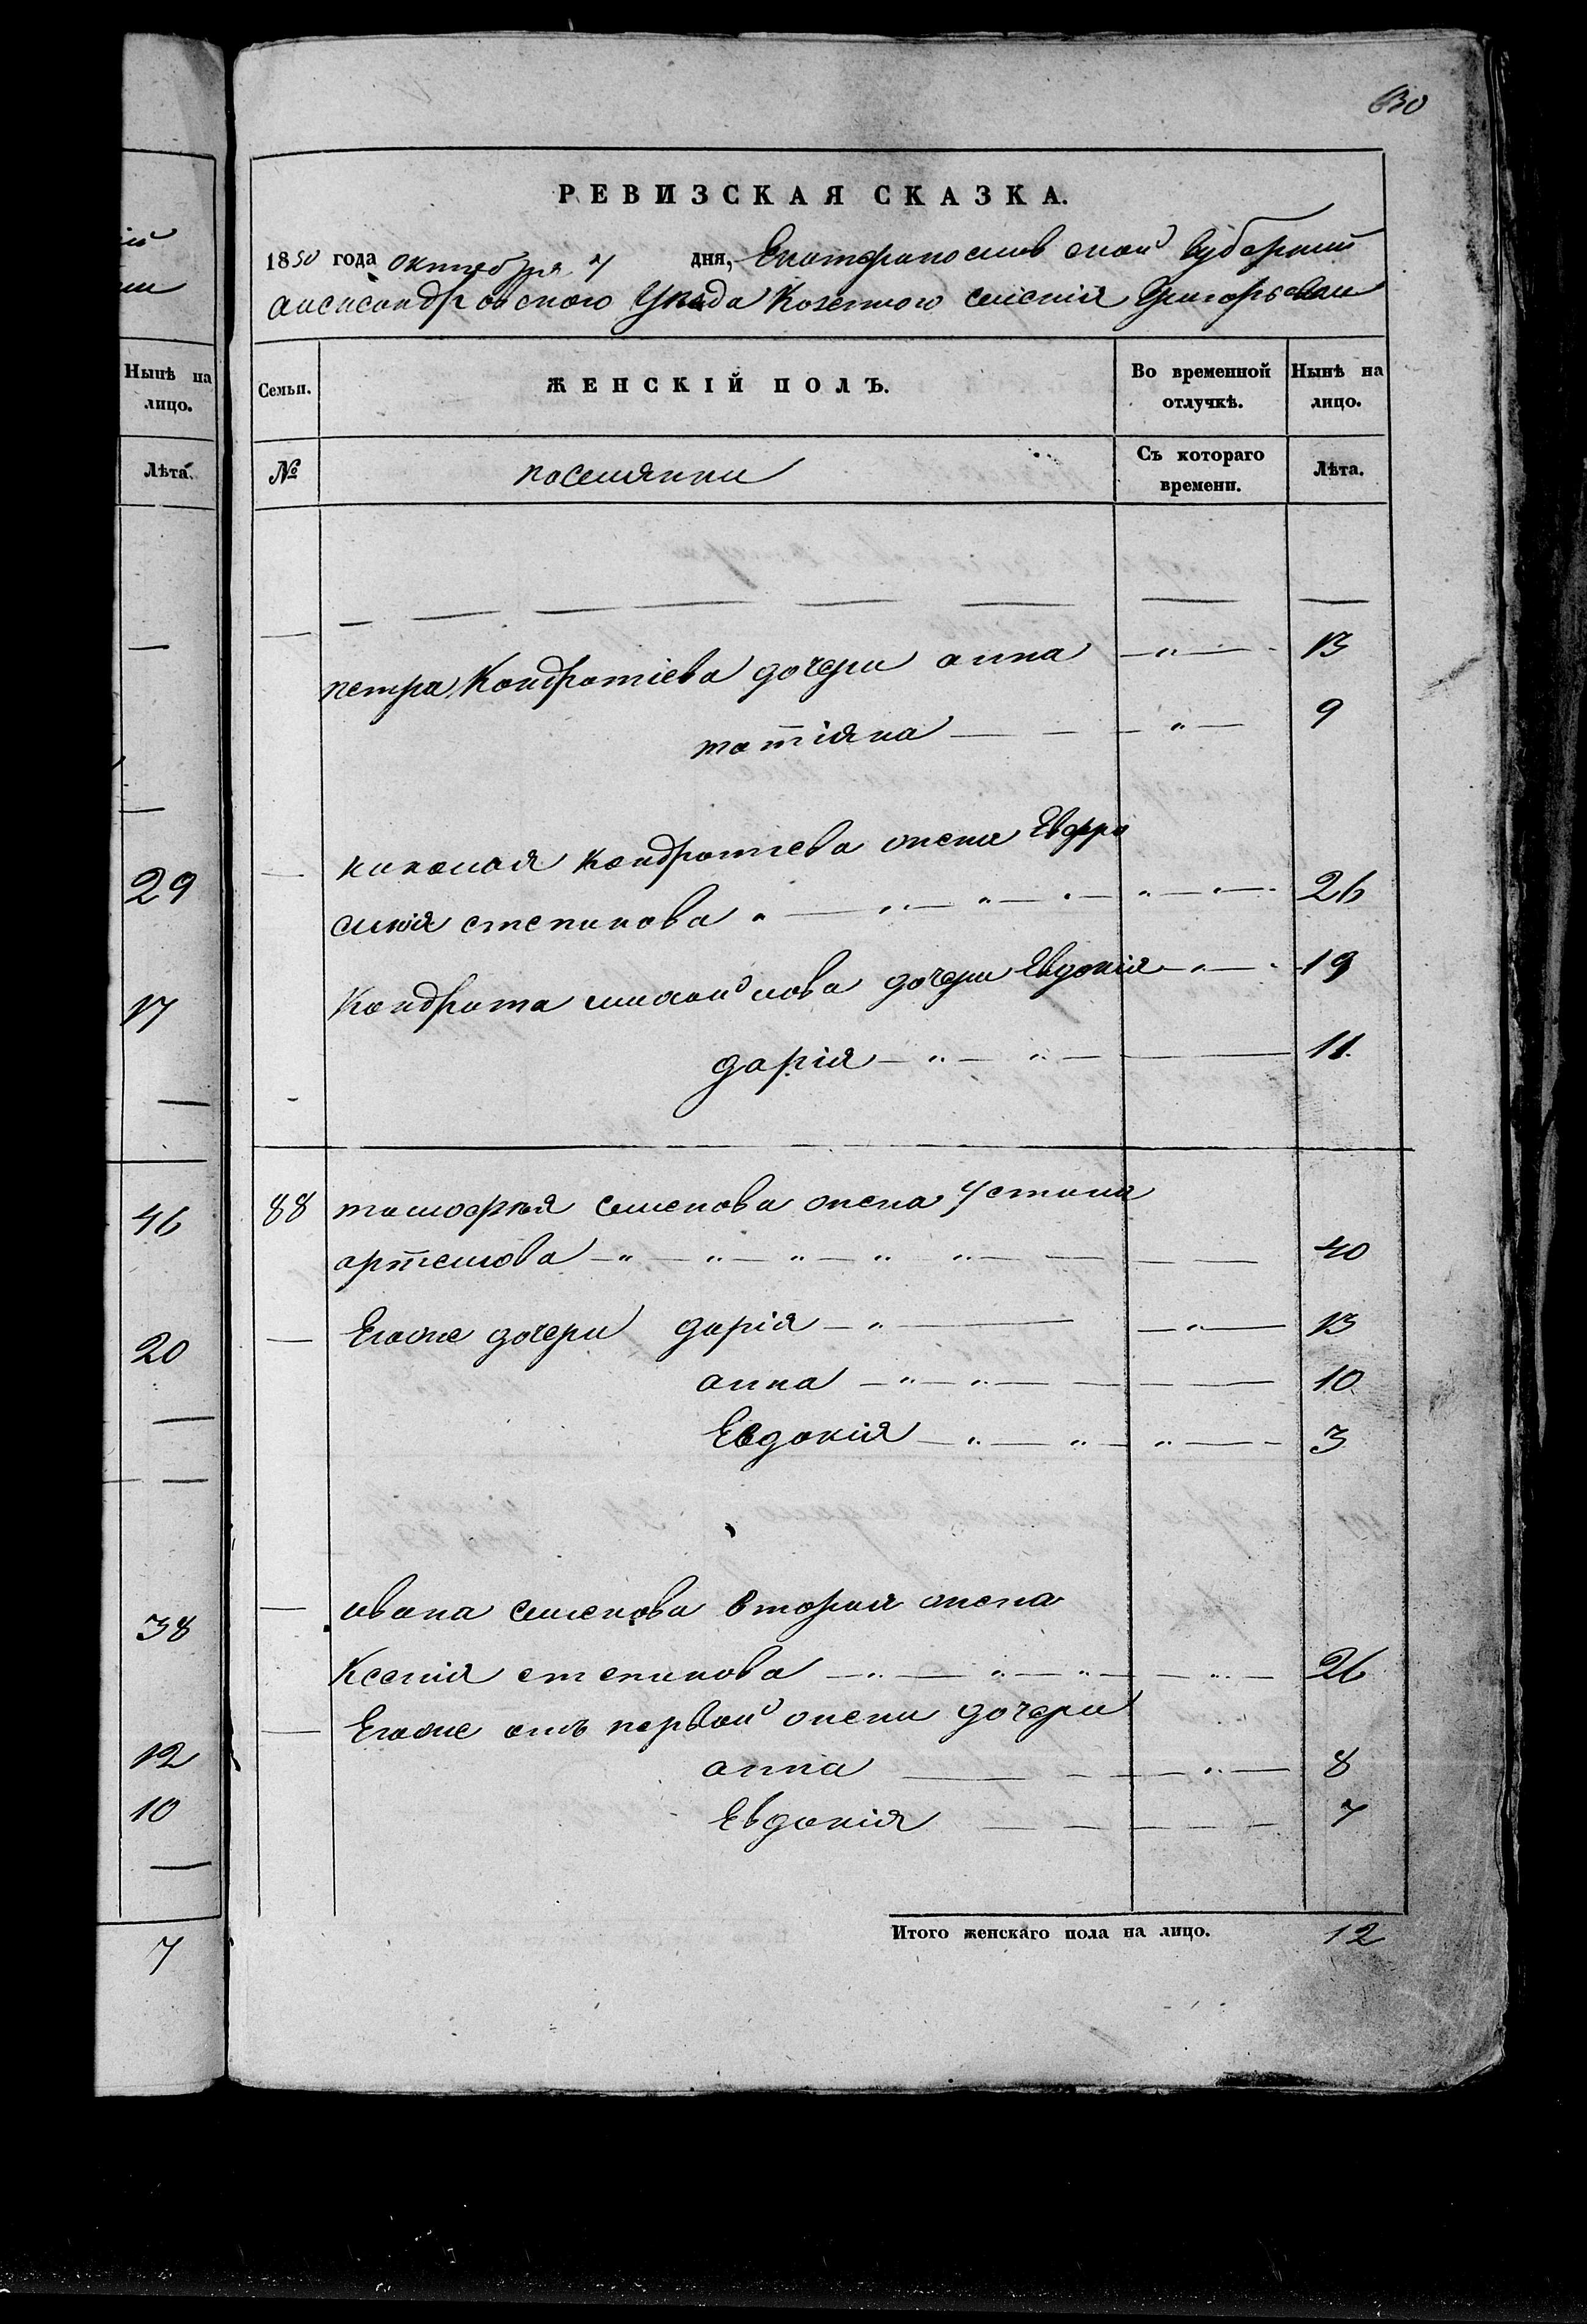 ій
ии
Нынѣ на
лицо.
Лѣта.
29
17
46
20
38
12
10
7
630
РЕВИЗСКАЯ СКАЗКА.
1850 года октября 7 дня, Екатеринославской Губерніи
александровского Уезда Козенного селенія Григорьевки
Семьи. ЖЕНСКІЙ ПОЛЪ. Во временной отлучкѣ. Нынѣ на лицо.
№ поселянки Съ котораго времени. Лѣта.
петра Кондратіева дочери анна 13
татіяна 9
николая кондратіева жена Евфро
синія степанова 26
Кондрата михайлова дочери Евдокія 19
дарія 11
88 тимофея семенова жена Устинья
артемова 40
Егоже дочери дарія 13
анна 10
Евдокія 3
ивана семенова вторая жена
Ксенія степанова 26
Егоже отъ первой жены дочери
анна 8
Евдокія 7
Итого женскаго пола на лицо. 12